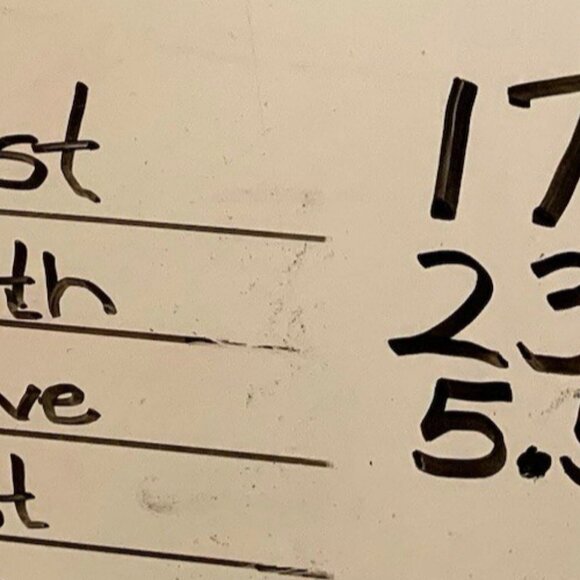 st 17
th 23
ve 5.5
st